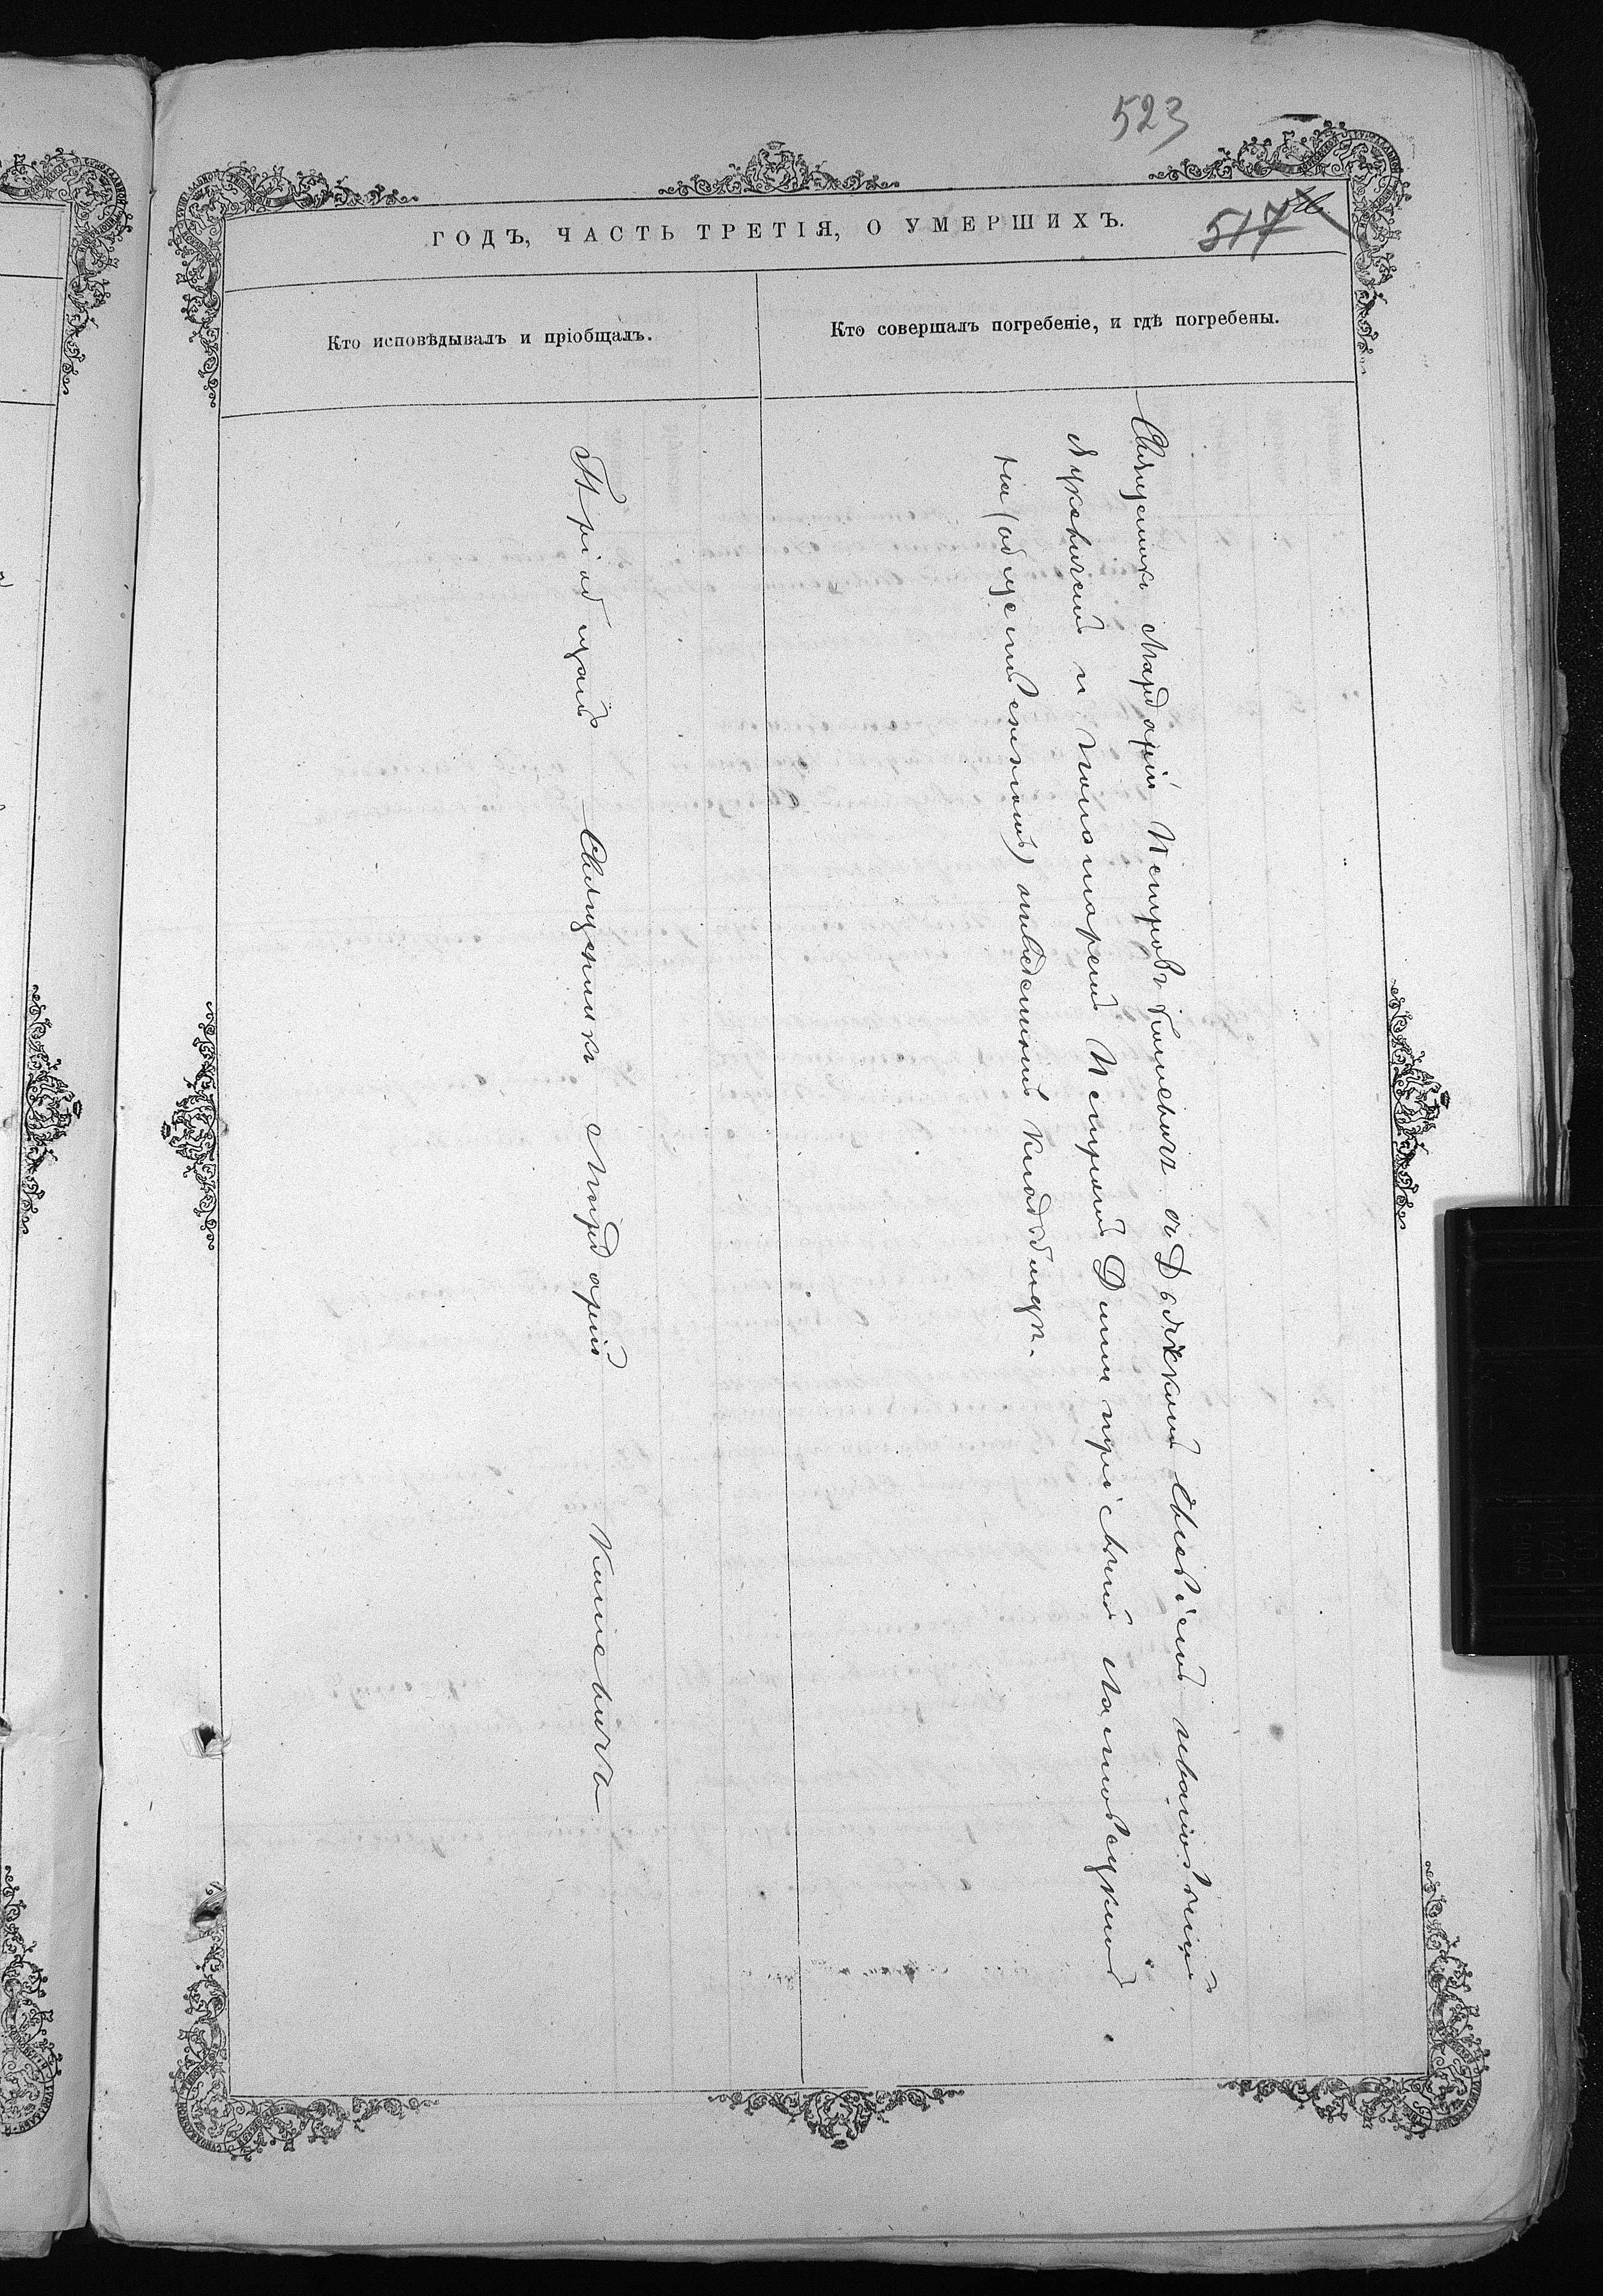 523
ГОДЪ, ЧАСТЬ ТРЕТІЯ, О УМЕРШИХЪ.
517
Кто исповѣдывалъ и пріобщалъ.
Кто совершалъ погребеніе, и гдѣ погребены.
Пріобщалъ Священникъ Мардарій Капіевичъ
Священникъ Мардарій Петровъ Капіевичъ съ Дьячкомъ Евсевіемъ Ивановымъ
Лукевичемъ и пономаремъ Петромъ Димитріевымъ
на (общественномъ) отведенномъ кладбищѣ.